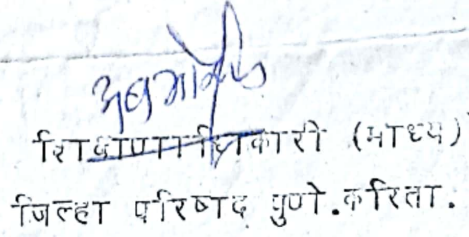 शिक्षाणाधिकारी (माध्य)
जिल्हा परिषाद पुणे.करिता.